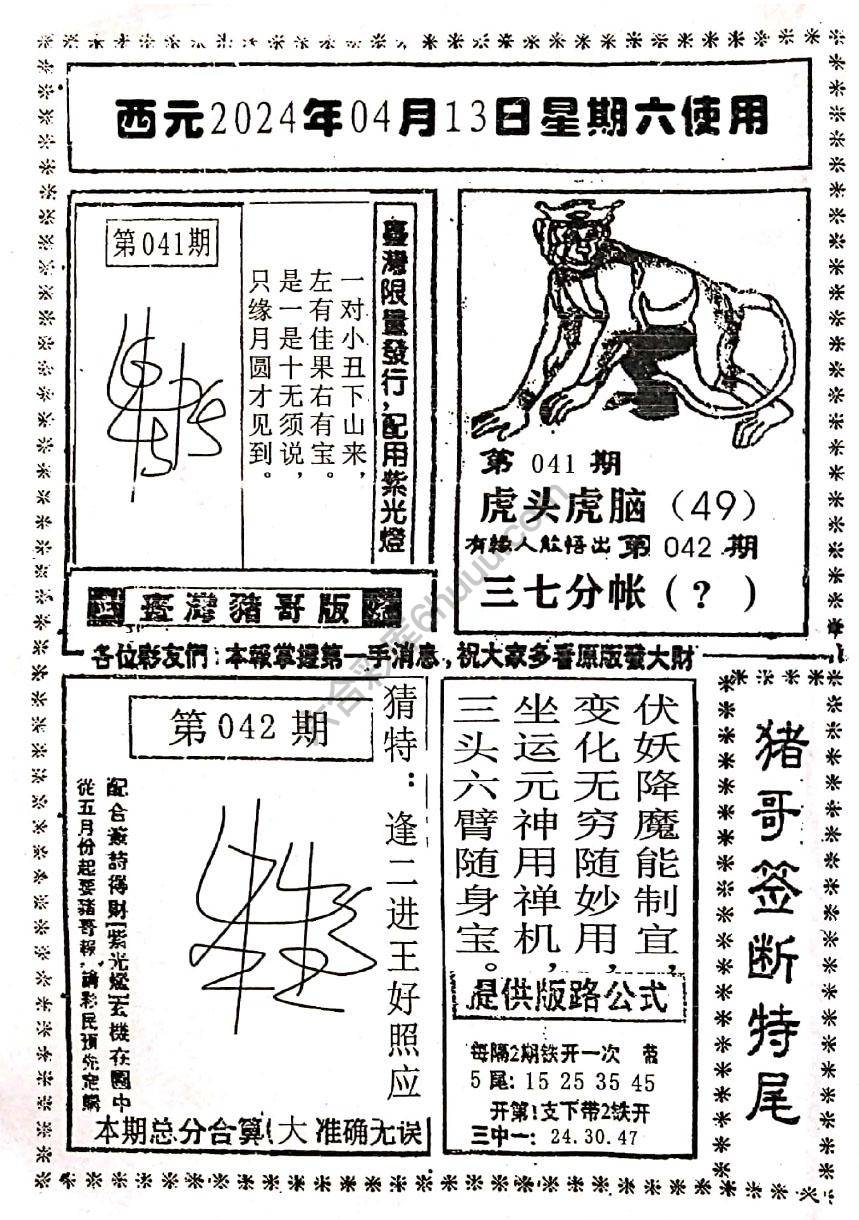 西元2024年04月13日星期六使用
第041期
一对小丑下山来，
左有佳果右有宝。
是一是十无须说，
只缘月圆才见到。
臺灣限量發行，配用紫光燈
臺灣豬哥版
第 041 期
虎头虎脑（49）
有緣人能悟出 第 042 期
三七分帐（？）
各位彩友們：本報掌握第一手消息，祝大家多看原版發大財
第042期
猜特：逢二进王好照应
配合叢詩得財【紫光燈】玄機在圖中
從五月份起要豬哥報，請彩民預先定購
本期总分合算（大 准确无误
伏妖降魔能制宜，
变化无穷随妙用，
坐运元神用禅机，
三头六臂随身宝。
提供版路公式
每隔2期铁开一次 带
5尾：15 25 35 45
开第1支下带2铁开
三中一：24.30.47
猪哥签断特尾
六合彩库6huuu.com